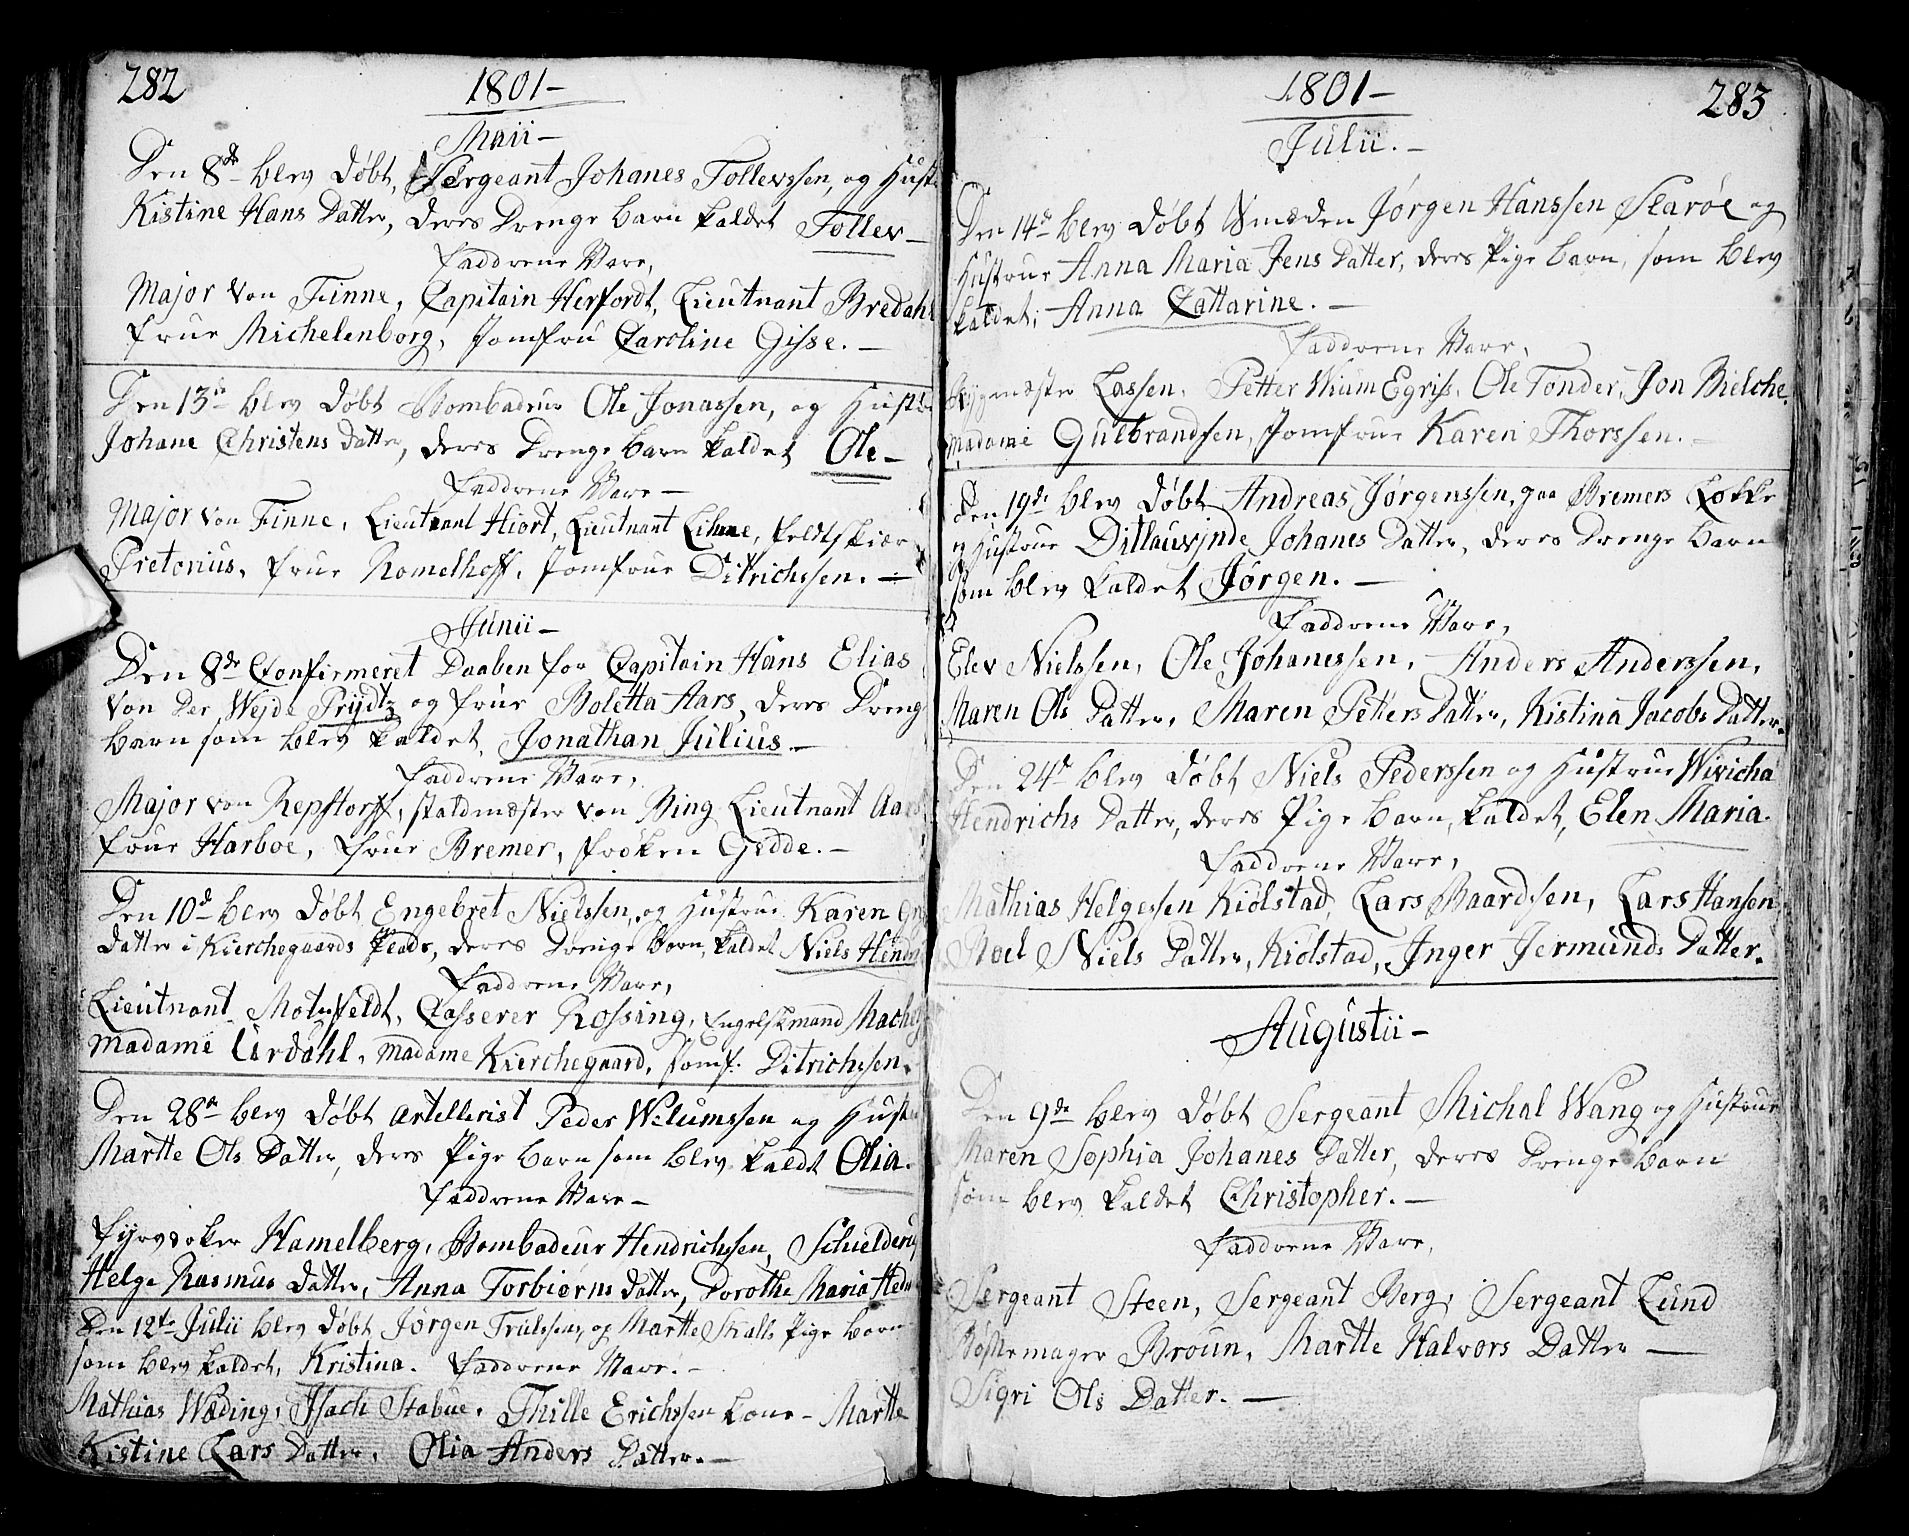 282
1801 –
Maii –
Den 8de blev døbt, Sergeant Johanes Tollevssen, og Hust
Kistine Hans Datter, deres Drenge barn kaldet Tollev –
Faddrene Vare,
Major von Finne, Capitain Herfordt, Lieutnant Bredahl
frue Michelenborg, Jomfru Caroline Gisse. –
Den 13de blev døbt Bombadeur Ole Jonassen, og Hust
Johane Christens Datter, deres Drenge barn kaldet Ole –
Faddrene Vare –
Major von Finne, Lieutnant Hiort, Lieutnant feldtskiær
Pretorius, frue Romelhoff, Jomfrue Ditrichssen. –
Junii –
Den 8de Confirmeret Daaben for Capitain Hans Elias
von der Wejde Prydtz og frue Boletta Aars, deres Dreng
barn som blev kaldet, Jonathan Julius –
Faddrene Vare,
Major von Repstorff, staldmester von Bing Lieutnant Aars
frue Harboe, frue Bremer, frøken Gedde. –
Den 10d blev døbt Engebret Nielssen, og Hustrue Karen
Datter i Kierchegaards deres Drenge barn, kaldet Niels Henri
Faddrene Vare,
Lieutnant Motzfeldt, Casserer Rossing, Engelskmand
Madame Urdahl, Madame Kierchegaard, Jomf: Ditrichssen.
Den 28de blev døbt Artellerist Peder Wilumssen og Hust
Martte Ols Datter, deres Pige barn som blev kaldt Olia.
Faddrene Vare –
Hamelberg, Bombadeur Hendrichssen, Schielderup
Helge Rasmus Datter, Anna Torbiørns Datter, Dorothe Maria
Den 12te Julii blev døbt, Jørgen Trulssens, og Martte Skalls Pige barn
som blev kaldet, Kristina. Faddrene Vare. –
Mathias Wæding, Isach Stabue, Thille Erichssen kone – Martte
Kistine Lars Datter, Olia Anders Datter. –
1801 –
283
Julii. –
Den 14de blev døbt Smeden Jørgen Hanssen Skarøe og
Hustrue Anna Maria Jens Datter, deres Pige barn, som blev
kaldet, Anna Cattarine. –
Faddrene Vare,
Lassen, Petter Wium Egriss, Ole Tonder, Jon Bielche
Madame Gulbrandsen, Jomfrue Karen Thorssen. –
Den 19de blev døbt Andreas Jørgenssen, paa Bremers Løkke
og Hustrue Ditlauvinde Johanes Datter, deres Drenge barn
som blev kaldet Jørgen. –
Faddrene Vare,
Elev Nielssen, Ole Johanessen, Anders Anderssen,
Maren Ols Datter, Maren Petters Datter, Kistina Jacobs Datter.
Den 24de blev døbt Niels Pederssen og Hustrue Wivicha
Hendrichs Datter, deres Pige barn, kaldet, Elen Maria.
Faddrene Vare,
Mathias Helgessen Kiølstad, Lars Baardssen, Lars Hansen
Roel Niels Datter, Kiølstad, Inger Jermunds Datter.
Augustii –
Den 9de blev døbt Sergeant Michal Wang og Hustrue
Maren Sophia Johanes Datter, deres Drenge barn
som blev kaldet Christopher. –
Faddrene Vare,
Sergeant Steen, Sergeant Berg, Sergeant Lund
Bøssemager Broun, Martte Halvors Datter –
Sigri Ols Datter. –